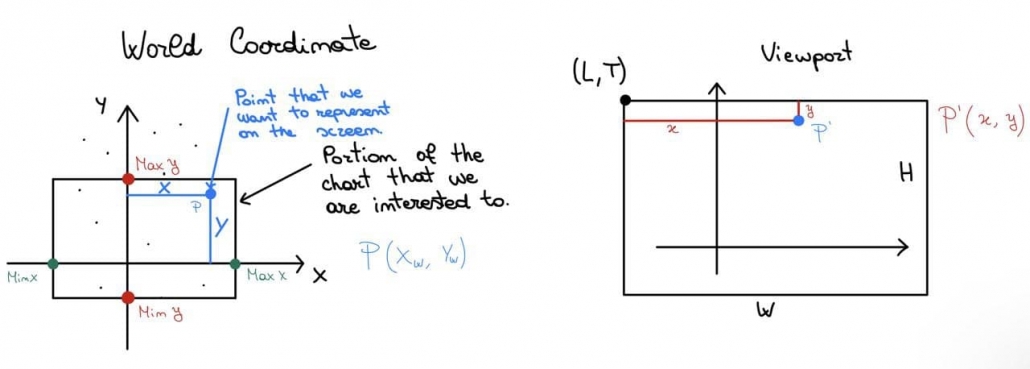 World Coordinate
Y
Point that we
want to represent
on the screen
Portion of the
chart that we
are interested to.
Max y
X
P
y
P(Xw, Yw)
Min x
Max x
X
Min y
Viewport
(L,T)
y
x
P'
P'(x, y)
H
W